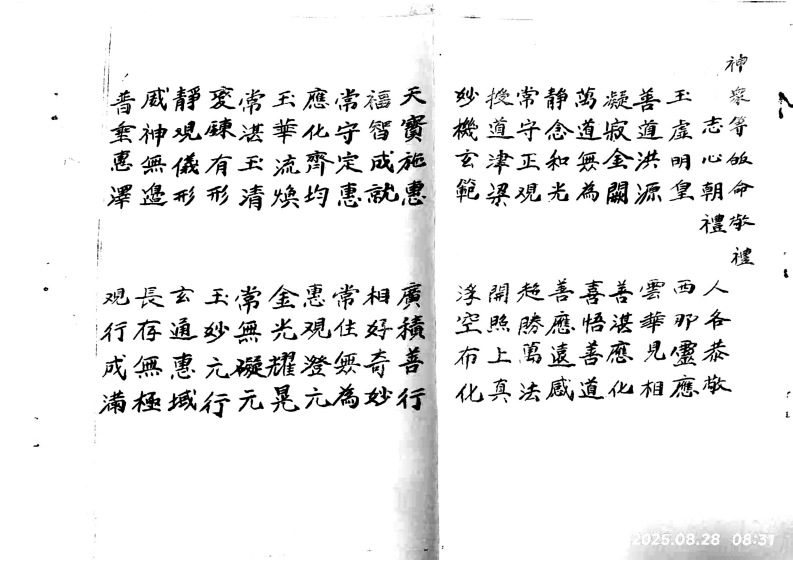 神眾等皈命敬禮
志心朝禮 人各恭敬
玉虛明皇 西那靈應
善道洪源 雲華見相
凝寂金闕 善湛應化
萬道無為 喜悟善道
静念和光 善應遠感
常守正观 超勝萬法
授道津梁 開照上真
妙機玄範 浮空布化
天寶施惠 廣積善行
福智成就 相好奇妙
常守定惠 常住無為
應化齊均 惠观澄元
玉華流煥 金光耀晃
常湛玉清 常無礙元
変鍊有形 玉妙元行
静观儀形 玄通惠域
威神無邊 長存無極
普垂惠澤 观行成满
2025.08.28 08:31